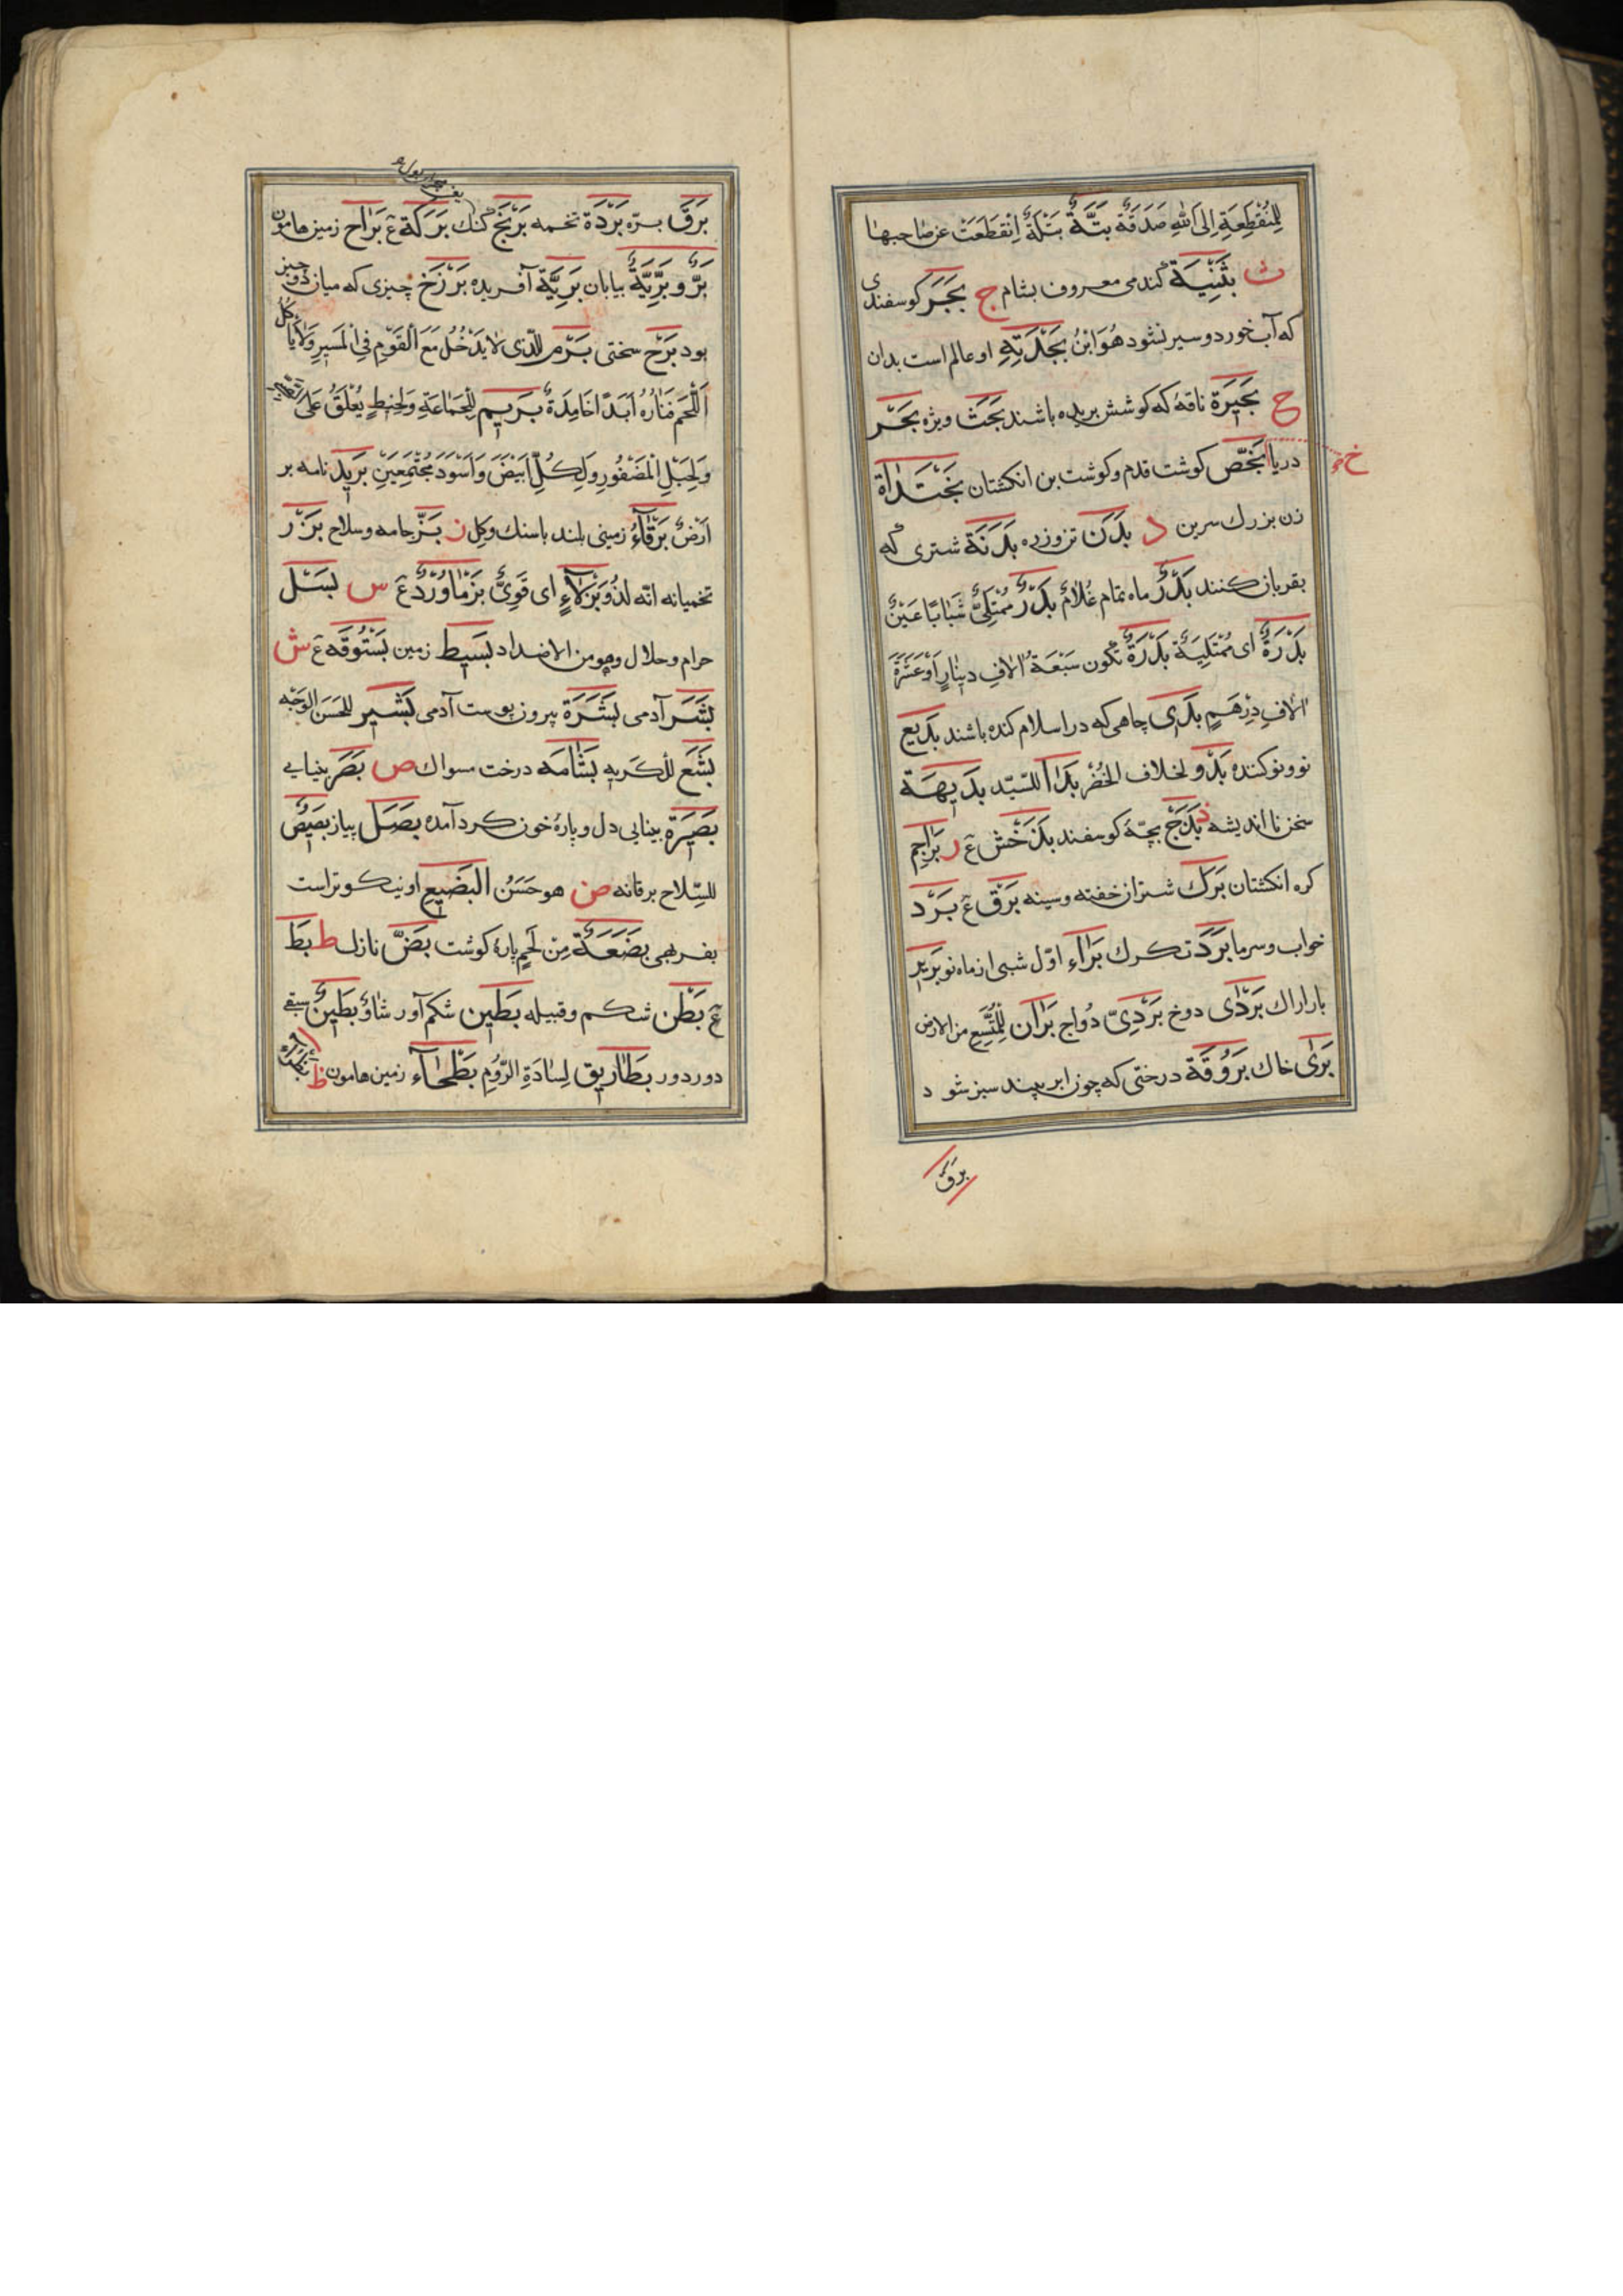 لِلْمُنْقَطِعَةِ اِلَى اللّٰهِ صَدَقَةٌ بَتَّةٌ بَتْلَةٌ اِنْقَطَعَتْ عن صاحبها
ث بَثَنِيَّة گندمی معروف بشام ج بَجَر کوسفندی
که آب خورد و سیر نشود هُوَ ابْنُ بَجْدَتِهِ او عالم است بدان
ح بَحِيرَة ناقهٔ که کوشش بریده باشند بَحْت ویژه بَحْر
دریا خ بَخَص کوشت قدم و کوشت بن انکشتان بَخَنْدَاة
زن بزرك سرین د بَدَن تن وزره بَدَنَة شتری که
بقربان کنند بَدْرٌ ماه تمام غُلَامٌ بَدْرٌ مُمْتَلِئٌ شَبَابًا عَيْنٌ
بَدْرَةٌ ای مُمْتَلِيَةٌ بَدْرَةٌ تکون سَبْعَةَ اٰلافِ دینارٍ اَوْ عَشَرَةَ
اٰلافِ دِرْهَمٍ بَدِی چاهی که در اسلام کنده باشند بَدِیع
نو و نو کننده بَدْو لخلاف الحُضْر بَدْأ للسّیّد بَدِیهَة
سخن نااندیشه ذ بَذَج بچّهٔ کوسفند بَذَخْش ع ر بَرَاجِم
کره انکشتان بَرْك شتران خفته و سینه بَرْق ع بَرْد
خواب و سرما بَرَد تکرك بَرَاء اوّل شبی از ماه نو بَرِیر
بار اراك بَرْدِی دوخ بَرْدِیّ دُواج بَرَان لِلْمُتَّسِعِ من الارض
بَرٰی خاك بَرْوَقَة درختی که چون ابر بیند سبز شود
برق
بَرَق برّه بَرْدَة تخمه بَرْبَخ کنك بَرَكَة ع بَرَاح زمین هامون
بَرٌّ و بَرِّيَّةٌ بیابان بَرِیَّة آفریده بَرْزَخ چیزی که میان دو چیز
بود بَرْح سختی بَرَم للّذی لا يَدْخُلُ مَعَ الْقَوْمِ فِي الْمَيْسِرِ وَلَا يأكل
اللَّحْمَ فَنَارُهُ اَبَدًا خَامِدَةٌ بَرِيم لِلْجَمَاعَةِ وَلِخَيْطٍ يُعْلَقُ عَلَى
وَلِحَبْلِ الْمَضْفُورِ وَلِكُلِّ اَبْيَضَ وَاَسْوَدَ مُجْتَمِعَيْنِ بَرِيد نامه بر
اَرْضٌ بَرْقَاءُ زمینی بلند با سنك و کل ز بَزّ جامه و سلاح بَزْر
تخمیانه انّه لَذُو بَزْلَاءٍ ای قَوِيٌّ بَزْمَاوَرْدٌ ع س بَسْل
حرام و حلال وهو من الاضداد بَسِيط زمین بَسْتُوقَه ع ش
بَشَر آدمی بَشَرَة بیرون پوست آدمی بَشِير للحَسَنِ الوَجْه
بَشِع للکریه بَشَامَه درخت مسواك ص بَصَر بینایی
بَصِيرَة بینایی دل و پارهٔ خون کرد آمده بَصَل پیاز بَصِيصٌ
للسّلاح برقانه ض هو حَسَنُ البَضِيعِ او نیکوتر است
بفربهی بَضْعَةٌ مِن لَحْمٍ پارهٔ کوشت بَضّ نازك ط بَطّ
ع بَطْن شکم و قبیله بَطِين شکم آور شَأْوٌ بَطِينٌ سبقی
دور دور بَطَارِيق لِسَادَةِ الرُّومِ بَطْحَاء زمین هامون ظ